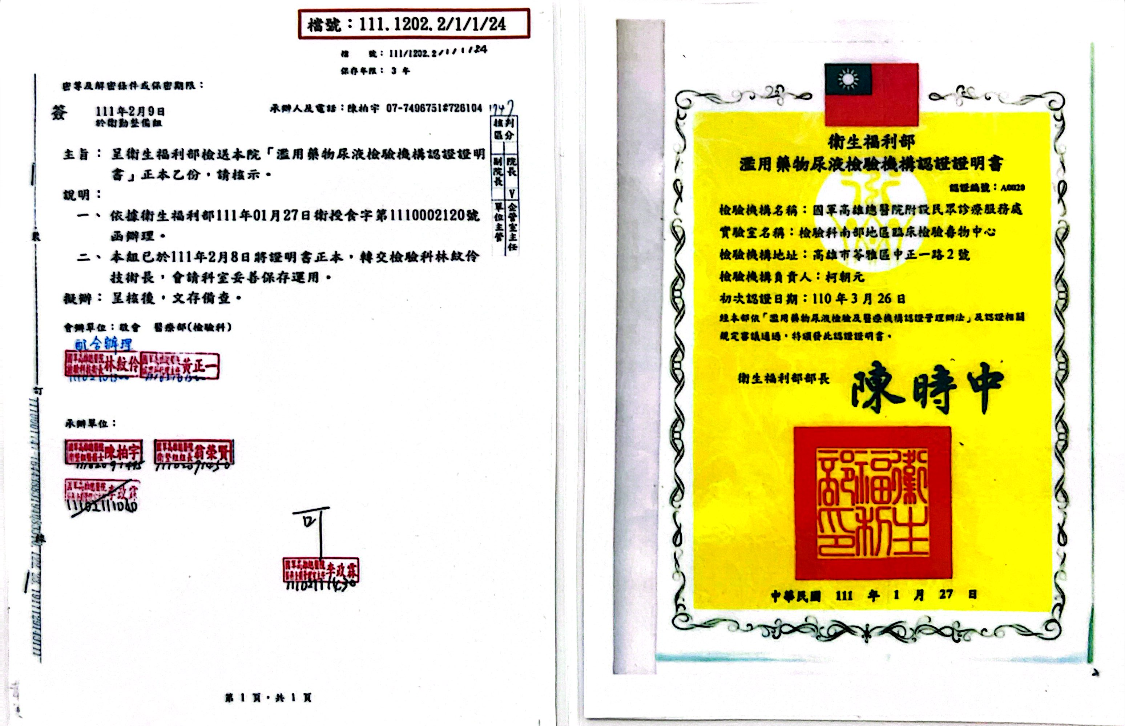 檔號：111.1202.2/1/1/24
檔　號：111/1202.2/1/1/24
保存年限：3 年
密等及解密條件或保密期限：
簽
111年2月9日
於衛勤整備組
承辦人及電話：陳柏宇 07-7496751#726104
1747
核判
區分
副院長
院長 V
單位主管
企管室主任
主旨：呈衛生福利部檢送本院「濫用藥物尿液檢驗機構認證證明
書」正本乙份，請核示。
說明：
一、依據衛生福利部111年01月27日衛授食字第1110002120號
函辦理。
二、本組已於111年2月8日將證明書正本，轉交檢驗科林紋伶
技術長，會請科室妥善保存運用。
擬辦：呈核後，文存備查。
會辦單位：敬會　醫療部(檢驗科)
配合辦理
林紋伶
黃正一
承辦單位：
陳柏宇
翁榮賢
李政霖
可
李政霖
裝
訂
線
第 1 頁，共 1 頁
衛生福利部
濫用藥物尿液檢驗機構認證證明書
認證編號：A0020
檢驗機構名稱：國軍高雄總醫院附設民眾診療服務處
實驗室名稱：檢驗科南部地區臨床檢驗毒物中心
檢驗機構地址：高雄市苓雅區中正一路2號
檢驗機構負責人：柯朝元
初次認證日期：110年3月26日
經本部依「濫用藥物尿液檢驗及醫療機構認證管理辦法」及認證相關
規定審議通過，特頒發此認證證明書。
衛生福利部部長
陳時中
衛生福利部印
中華民國 111 年 1 月 27 日